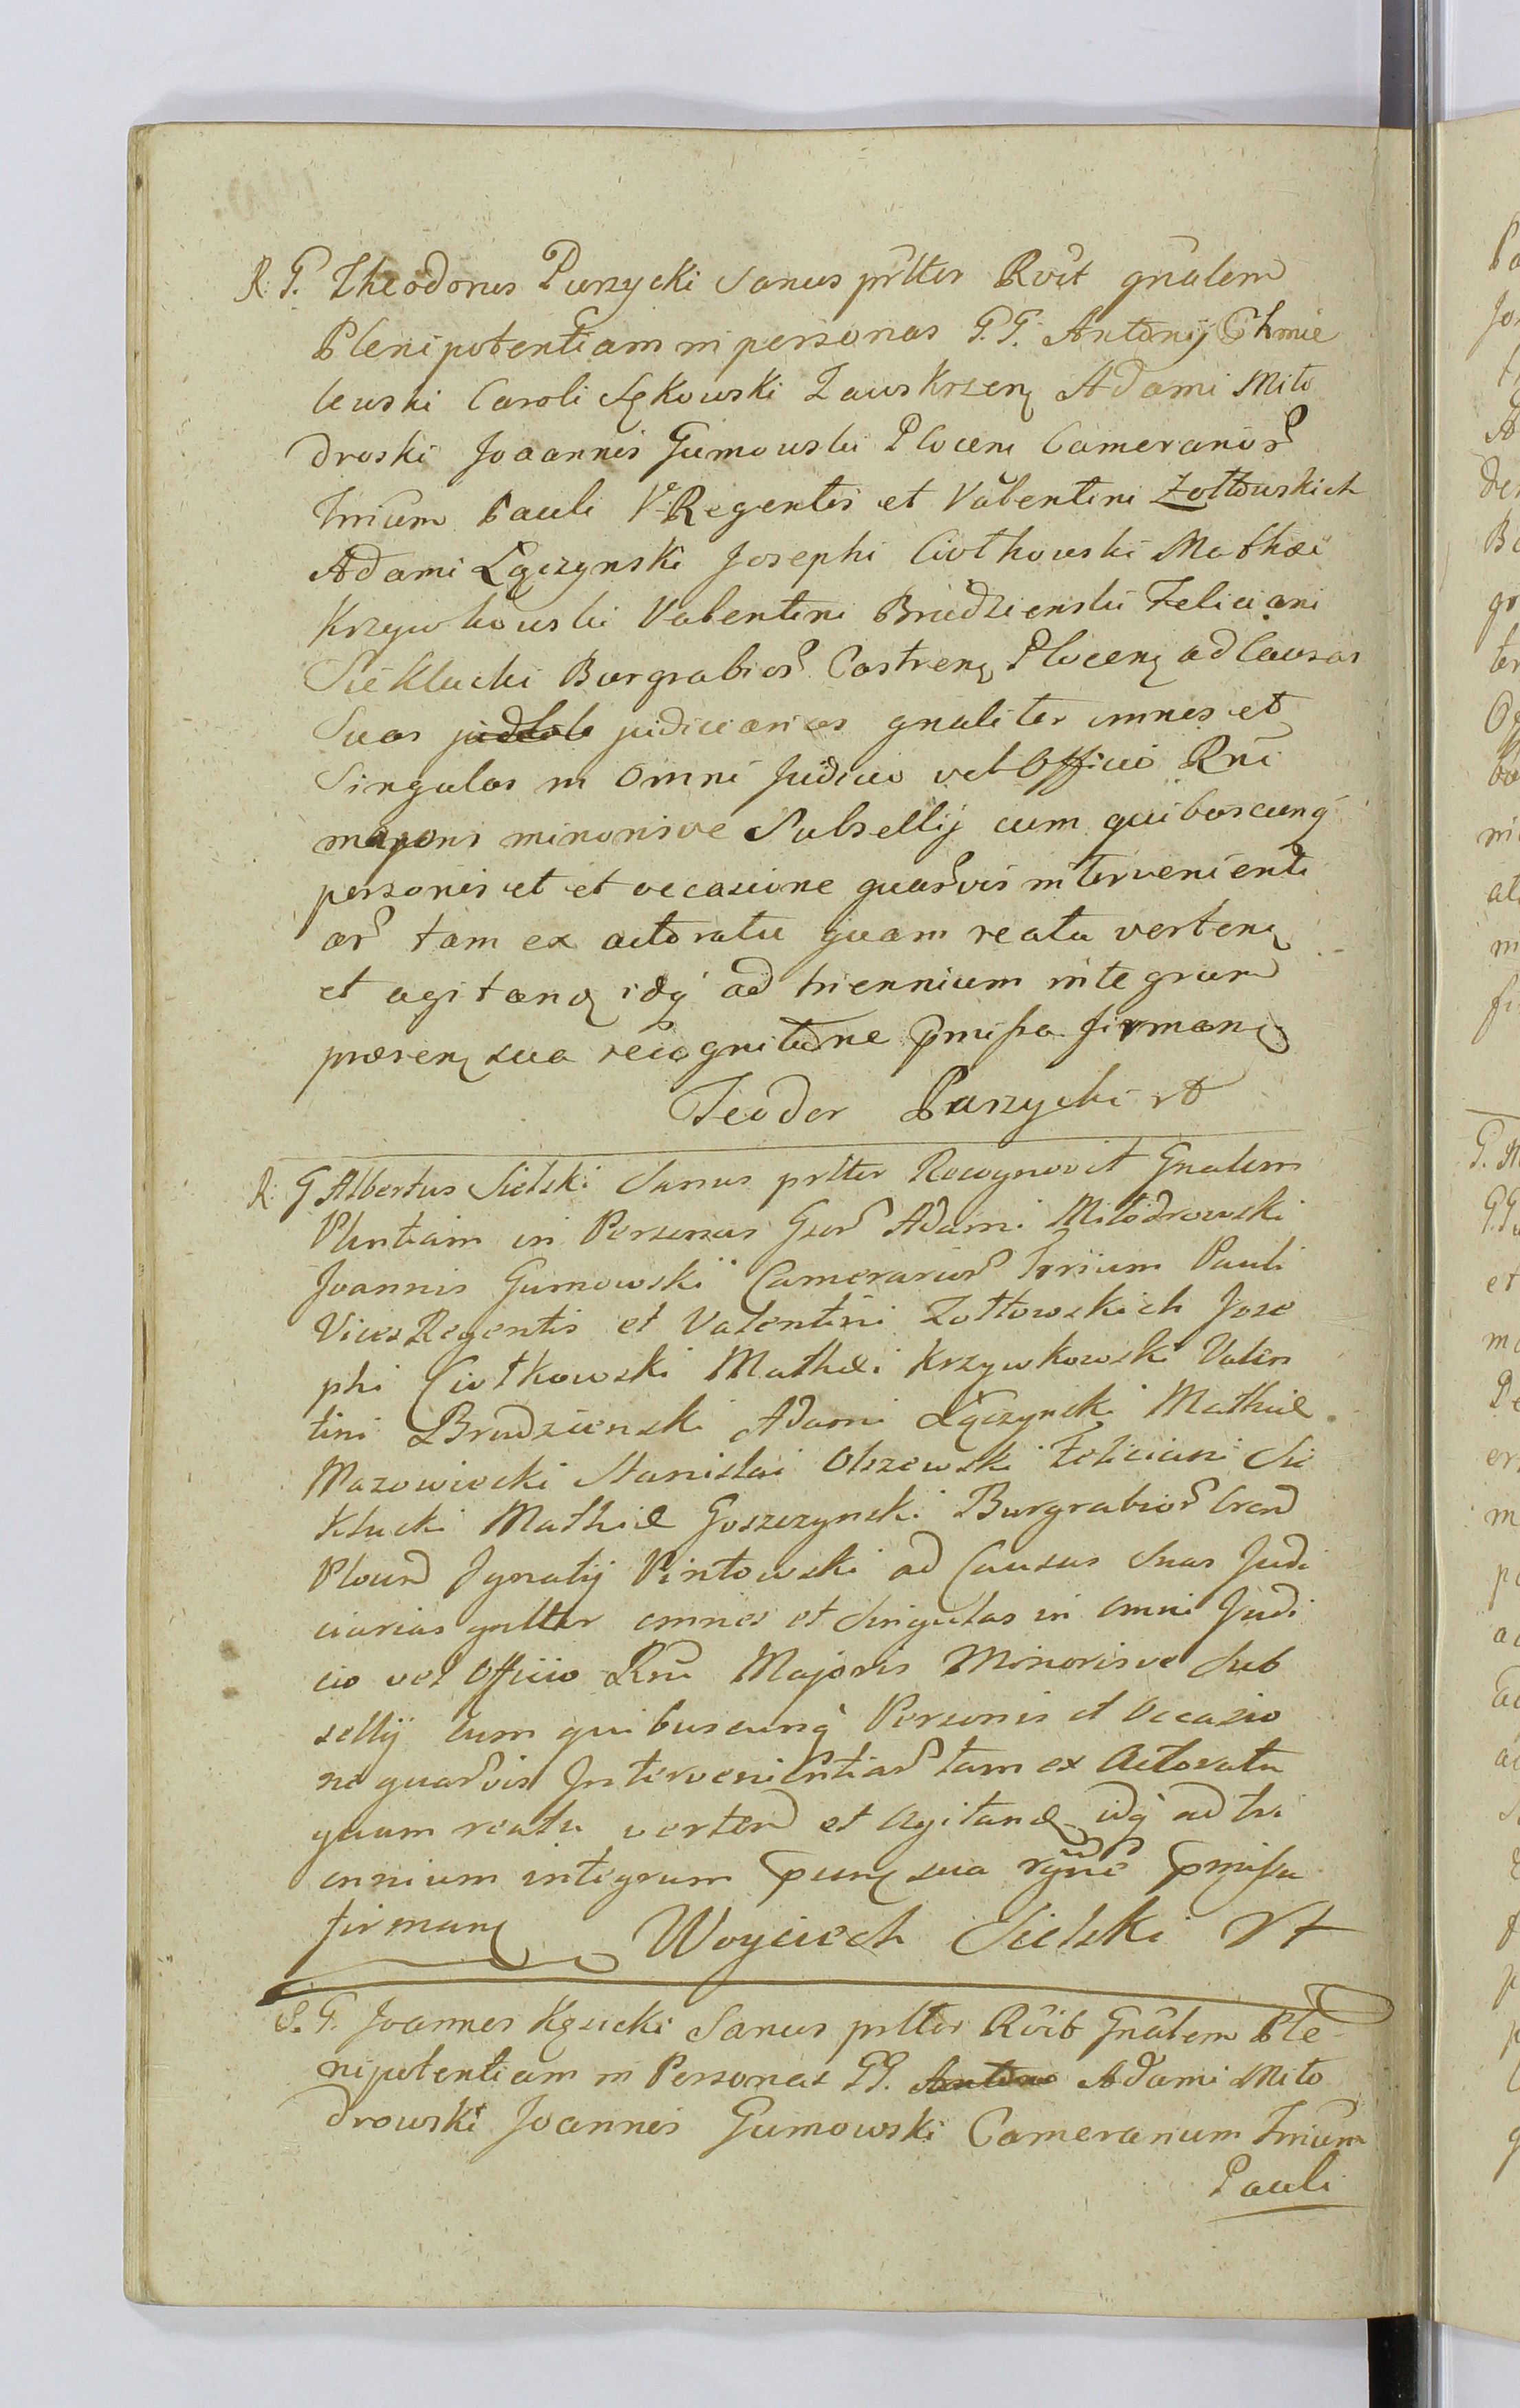 R. G. Theodorus Purzycki Sanus prltter Rvit gnalem
Plenipotentiam in personas G. G. Antonij Chmie
lewski Caroli Sękowski Zawskrzen Adami Miło
droski Joaannis Gumowski Plocen Camerarior
Trrium Pauli V Regentis et Valentini Zołtowskich
Adami Łączynski Josephi Ciołkowski Mathæi
Krzywkowski Valentini Brudzienski Feliciani
Sieklucki Burgrabior Castren Plocen ad Causas
Suas judiciarias gnaliter omnes et
Singulas in Omni Judicio vel Officio Rni
majoris minorisve Subsellij cum quibuscunq
personis et et occasione quarvis intervenienti
ar tam ex actoratu quam reatu verten
et agitand idq ad triennium integrum
præsen sua recognitione pmissa firman
Teodor Purzycki
R. G Albertus Sielski Sanus prltter Recognovit Gnalem
Plentiam in Personas Geor Adami Miłodrowski
Joannis Gumowski Camerarior Trrium Pauli
Vices Regentis et Valentini Zołtowskich Jose
phi Ciołkowski Mathæi Krzywkowski Valen
tini Brudzienski Adami Łączynski Mathiæ
Mazowiecki Stanislai Olszewski Feliciani Sie
klucki Mathiæ Goszczynski Burgrabior
Ignatij Pintowski ad Causas Suas Judi
ciarias gnltter omnes et Singulas in omni Judi
cio vel Officio Rni Majoris Minorisve Sub
sellij cum quibuscunq Personis et Occasio
ne quarvis Intervenientiar tam ex Actoratu
quam reatu verten et Agitand idq ad tri
ennium integrum sua pmissa
firman Woyciech Sielski
S. G. Joannes Kęsicki Sanus prltter Rvit Gnalem Ple
nipotentiam in Personas GG. Adami Miło
drowski Joannis Gumowski Camerarium Trrium
Pauli